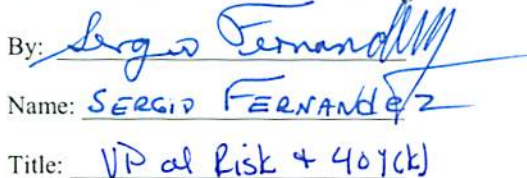 By: Sergio Fernandez
Name: SERGIO FERNANdEZ
Title: VP of Risk + 401(k)